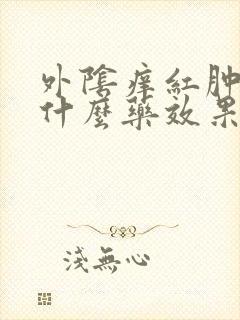 外陰痒紅肿
什麼藥效果
淺無心